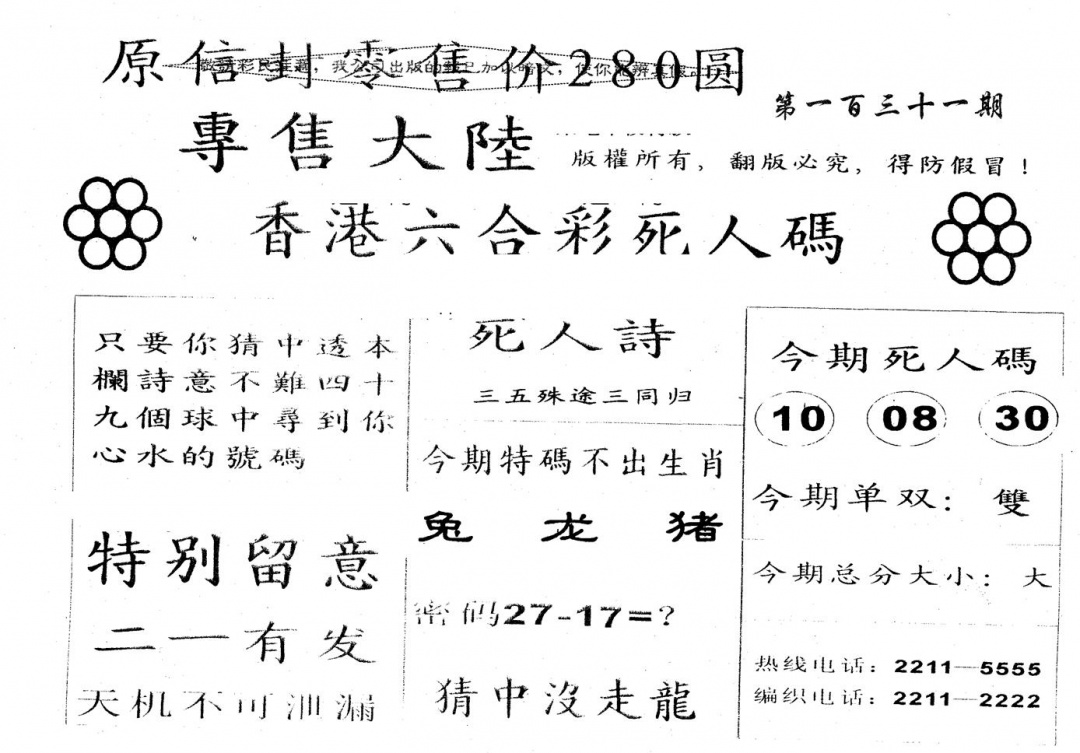 原信封零售价280圆
敬請彩民注意，我公司出版的
第一百三十一期
專售大陸
版權所有，翻版必究，得防假冒！
香港六合彩死人碼
只要你猜中透本
欄詩意不難四十
九個球中尋到你
心水的號碼
特别留意
二一有发
天机不可泄漏
死人詩
三五殊途三同归
今期特碼不出生肖
兔 龙 猪
密码27-17=?
猜中沒走龍
今期死人碼
10 08 30
今期单双：雙
今期总分大小：大
热线电话：2211—5555
编织电话：2211—2222